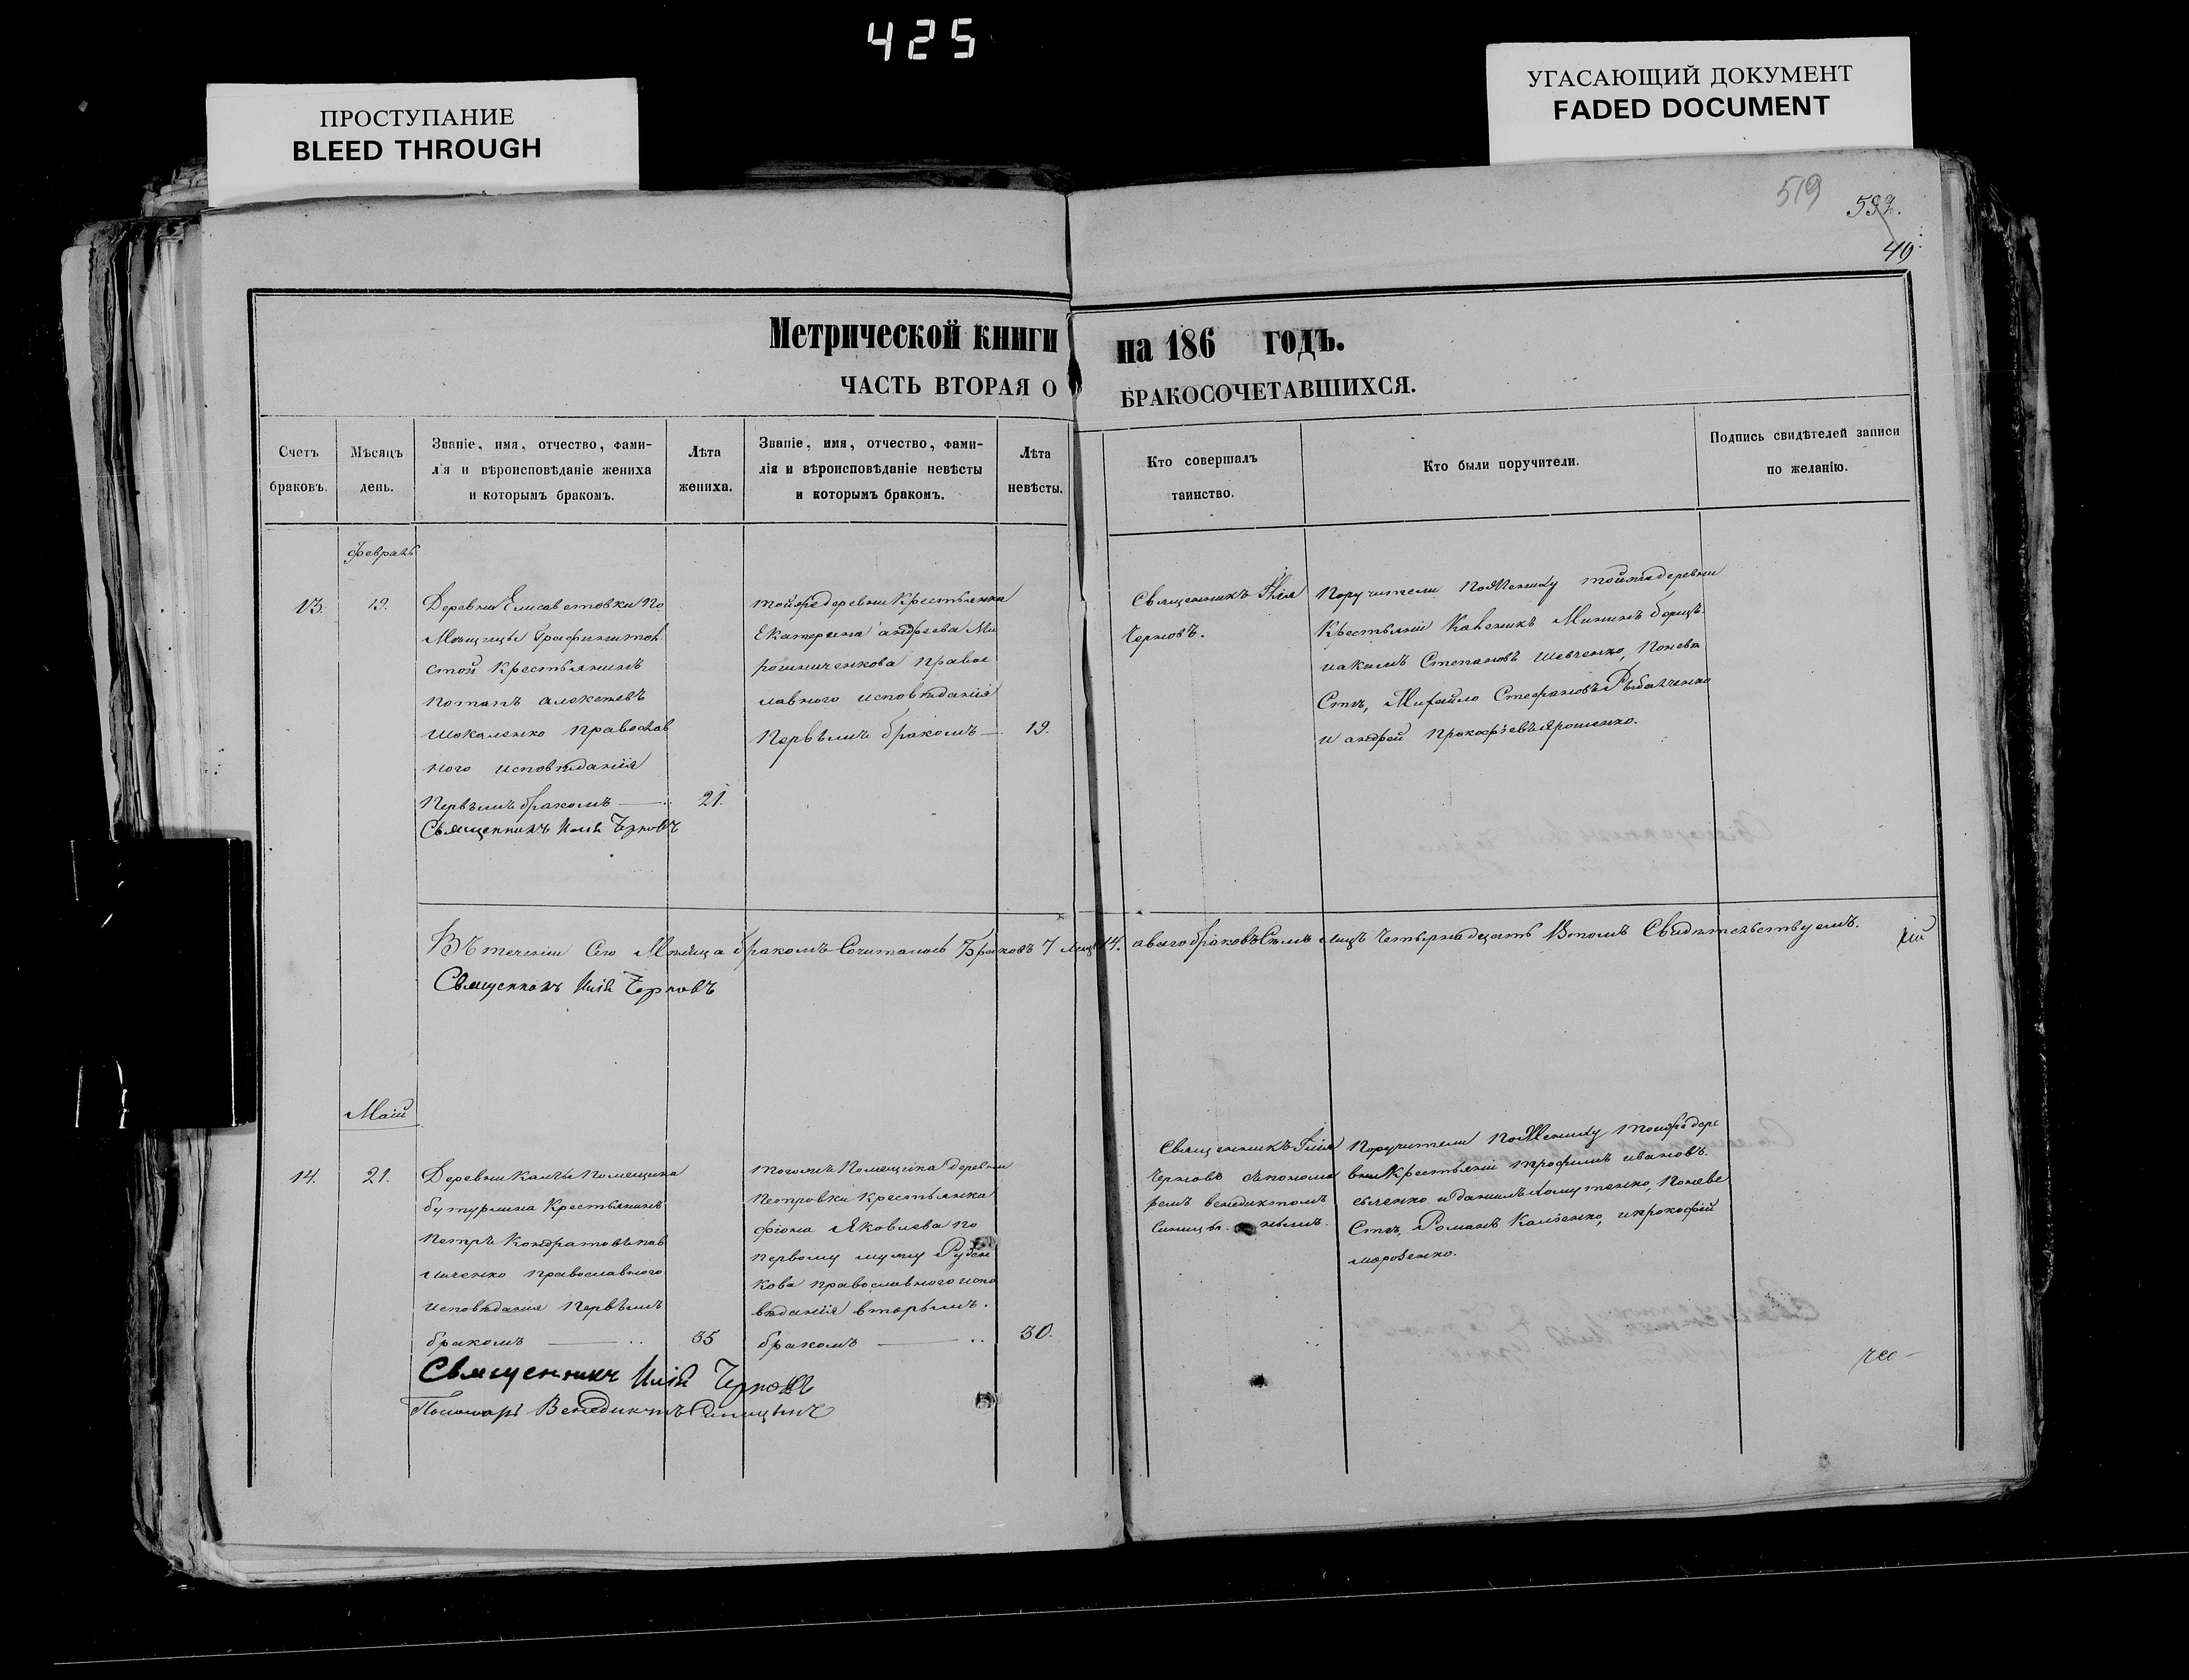 425
ПРОСТУПАНИЕ
BLEED THROUGH
УГАСАЮЩИЙ ДОКУМЕНТ
FADED DOCUMENT
519
532.
49
Метрической книги на 186 годъ.
ЧАСТЬ ВТОРАЯ О БРАКОСОЧЕТАВШИХСЯ.
Счетъ
браковъ.
Мѣсяцъ
день.
Званіе, имя, отчество, фами-
лія и вѣроисповѣданіе жениха
и которымъ бракомъ.
Лѣта
жениха.
Званіе, имя, отчество, фами-
лія и вѣроисповѣданіе невѣсты
и которымъ бракомъ.
Лѣта
невѣсты.
Кто совершалъ
таинство.
Кто были поручители.
Подпись свидѣтелей записи
по желанію.
Февраль
13.
19.
Деревни Елисаветовки По
мѣщицы Графини тол
стой Крестьянинъ
Потапъ алексѣевъ
Шокаленко Православ
ного исповѣданія
Первымъ бракомъ
21.
Священникъ Илія Черновъ
тойже деревни Крестьянка
Екатерина андреева Ми
рошниченкова Правос
лавного исповѣданія
Первымъ бракомъ
19.
Священникъ Илія
Черновъ.
Поручители По Жениху тойже деревни
Крестьяніи Каленикъ Мининъ борщъ
иакимъ Степановъ Шевченко, Поневѣ
Стѣ, Михайло Стефановъ Рыбалченко
и андрей Прокофіевъ Ярошенко.
Въ теченіи Сего Мѣсяца бракомъ Сочиталось Браковъ 7 лицъ 14. авсего браковъ Семь лицъ Четырнадцать Втомъ Свидѣтельствуемъ.
Священникъ Илія Черновъ
Маій
14.
21.
Деревни Канъы Помещика
бутурлина Крестьянинъ
Петръ Кондратовъ пав
личенко православного
исповѣданія Первымъ
бракомъ
35
тогожъ Помещика деревни
Петровки Крестьянка
фіона Яковлева по
первому мужу Руден
кова православного испо
вѣданія вторымъ.
бракомъ
30.
Священникъ Илія
Черновъ спонома
ремъ венедиктомъ
Синицы нымъ.
Поручители По Жениху тойже дере
вни Крестьяніи трофимъ ивановъ.
и данилъ Хомутенко, Поневе
Стѣ, Романъ Калѣенко, ипрокофій
морозенко.
Священникъ Илія Черновъ
Пономарь Венедиктъ Синицынъ